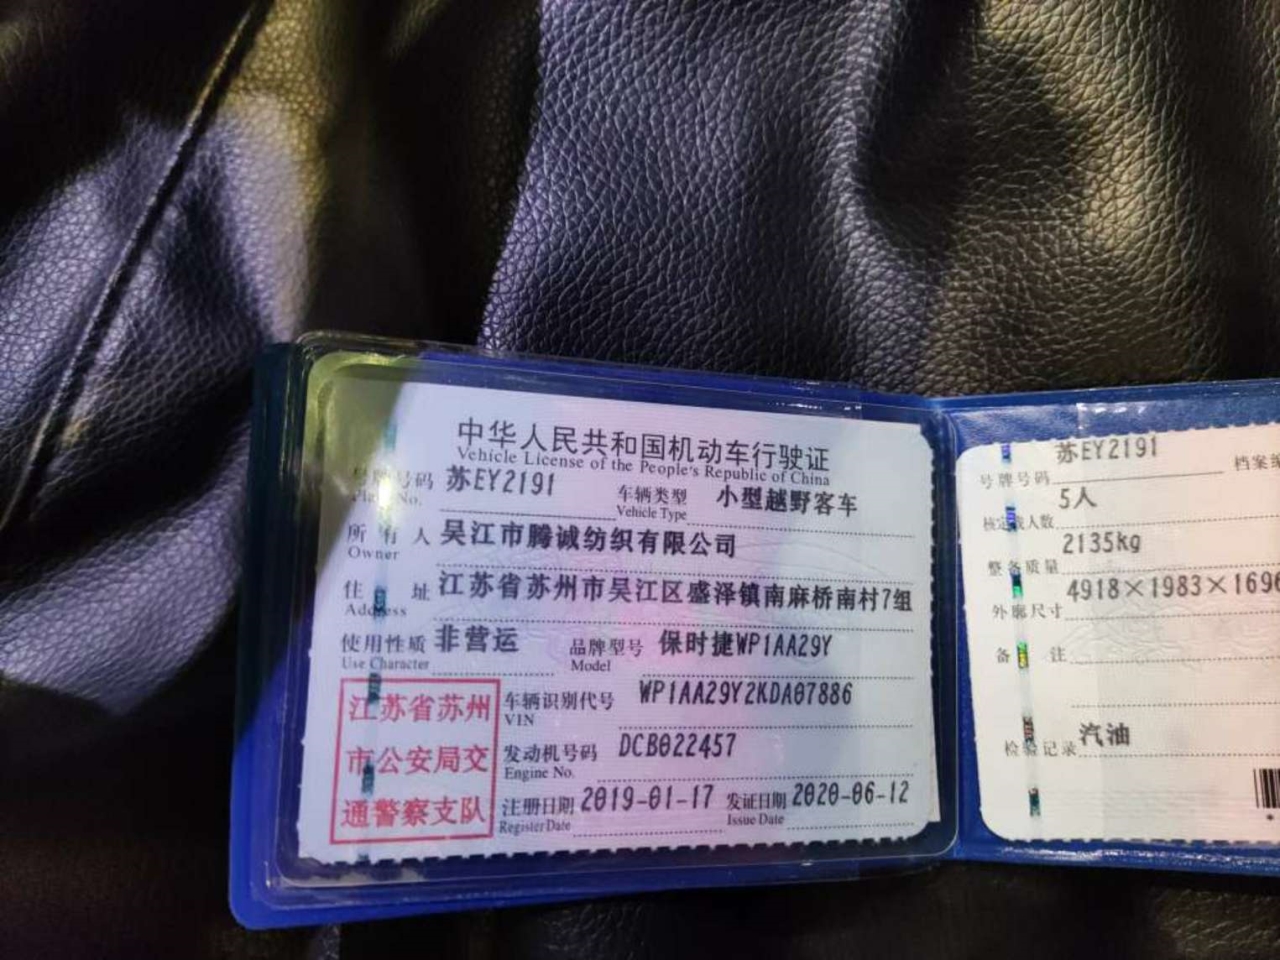 中华人民共和国机动车行驶证
Vehicle License of the People's Republic of China
号牌号码 苏EY2191 车辆类型 小型越野客车
Plate No. Vehicle Type
所有人 吴江市腾诚纺织有限公司
Owner
住址 江苏省苏州市吴江区盛泽镇南麻桥南村7组
Address
使用性质 非营运 品牌型号 保时捷WP1AA29Y
Use Character Model
江苏省苏州
市公安局交
通警察支队
车辆识别代号 WP1AA29Y2KDA07886
VIN
发动机号码 DCB022457
Engine No.
注册日期 2019-01-17 发证日期 2020-06-12
Register Date Issue Date
号牌号码 苏EY2191 档案编
核定载人数 5人
整备质量 2135kg
外廓尺寸 4918×1983×1696
备注
检验记录 汽油